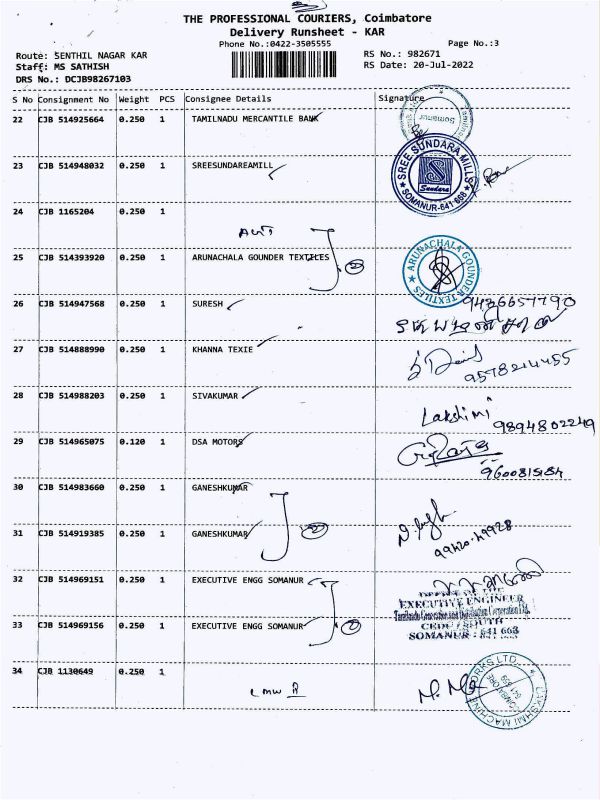 THE PROFESSIONAL COURIERS, Coimbatore
Delivery Runsheet - KAR
Phone No.:0422-3505555
Page No.:3
Route: SENTHIL NAGAR KAR
RS No.: 982671
Staff: MS SATHISH
RS Date: 20-Jul-2022
DRS No.: DCJB98267103
S No Consignment No Weight PCS Consignee Details Signature
22 CJB 514925664 0.250 1 TAMILNADU MERCANTILE BANK
Somanur
23 CJB 514948032 0.250 1 SREESUNDAREAMILL
SREE SUNDARA MILLS
Sundara
SOMANUR-641 668
24 CJB 1165204 0.250 1
25 CJB 514393920 0.250 1 ARUNACHALA GOUNDER TEXTILES 2
ARUNACHALA GOUNDER TEXTILES
26 CJB 514947568 0.250 1 SURESH
27 CJB 514888990 0.250 1 KHANNA TEXIE
9578214455
28 CJB 514988203 0.250 1 SIVAKUMAR
Lakshmi
9894802249
29 CJB 514965075 0.120 1 DSA MOTORS
30 CJB 514983660 0.250 1 GANESHKUMAR
31 CJB 514919385 0.250 1 GANESHKUMAR 2
99420 49928
32 CJB 514969151 0.250 1 EXECUTIVE ENGG SOMANUR
OFFICE OF THE
EXECUTIVE ENGINEER
Tamilnadu Generation and Distribution Corporation Ltd.
33 CJB 514969156 0.250 1 EXECUTIVE ENGG SOMANUR 2
CEDC / SOUTH
SOMANUR - 641 668
34 CJB 1130649 0.250 1
LMW
LAKSHMI MACHINE WORKS LTD.
COIMBATORE